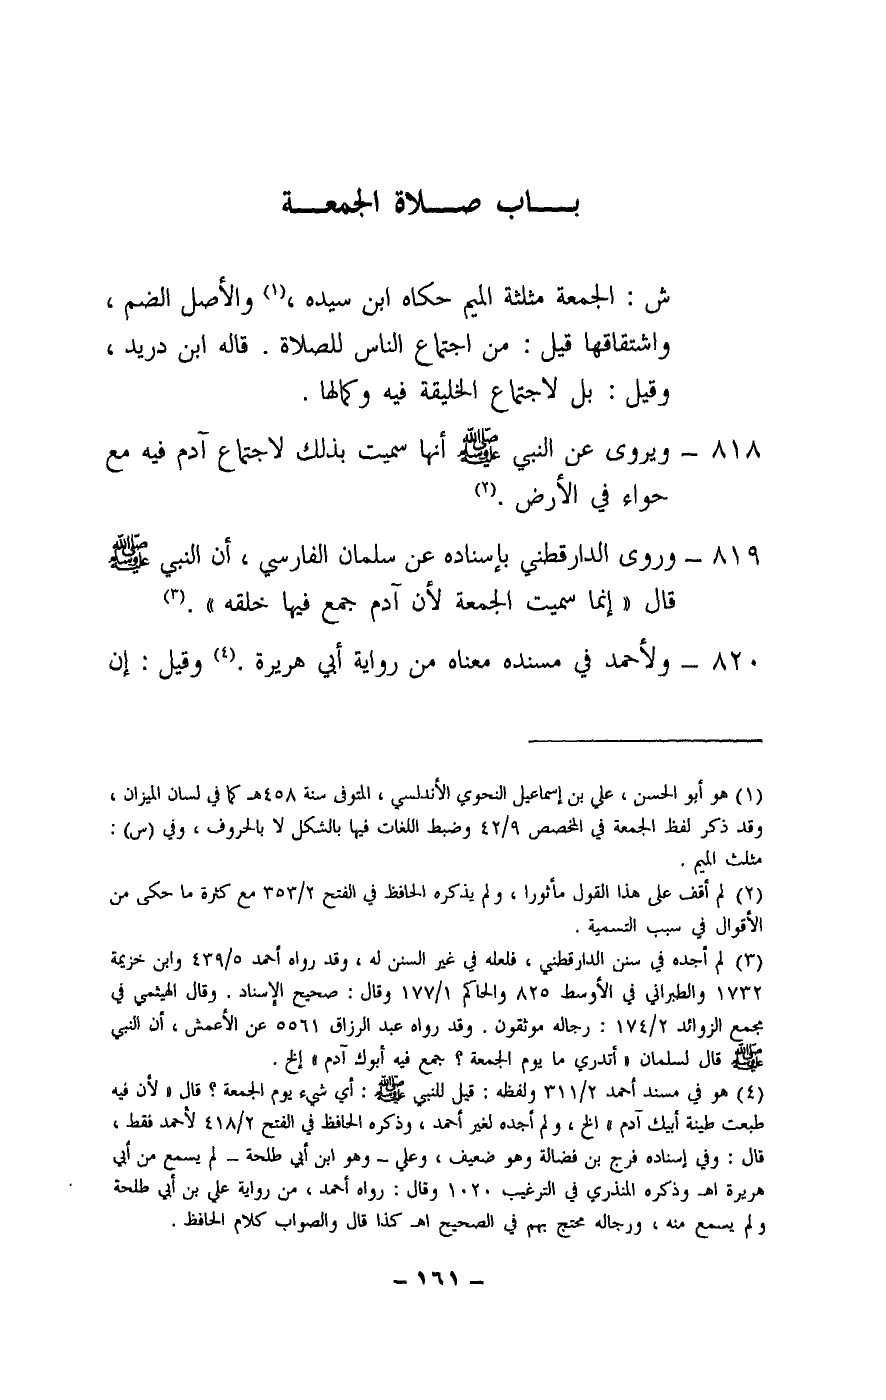 باب صلاة الجمعة
ش : الجمعة مثلثة الميم حكاه ابن سيده ،(١) والأصل الضم ،
واشتقاقها قيل : من اجتماع الناس للصلاة . قاله ابن دريد ،
وقيل : بل لاجتماع الخليقة فيه وكمالها .
٨١٨ – ويروى عن النبي ﷺ أنها سميت بذلك لاجتماع آدم فيه مع
حواء في الأرض .(٢)
٨١٩ – وروى الدارقطني بإسناده عن سلمان الفارسي ، أن النبي ﷺ
قال « إنما سميت الجمعة لأن آدم جمع فيها خلقه » .(٣)
٨٢٠ – ولأحمد في مسنده معناه من رواية أبي هريرة .(٤) وقيل : إن
(١) هو أبو الحسن ، علي بن إسماعيل النحوي الأندلسي ، المتوفى سنة ٤٥٨هـ كما في لسان الميزان ،
وقد ذكر لفظ الجمعة في المخصص ٤٢/٩ وضبط اللغات فيها بالشكل لا بالحروف ، وفي (س) :
مثلث الميم .
(٢) لم أقف على هذا القول مأثورا ، ولم يذكره الحافظ في الفتح ٣٥٣/٢ مع كثرة ما حكى من
الأقوال في سبب التسمية .
(٣) لم أجده في سنن الدارقطني ، فلعله في غير السنن له ، وقد رواه أحمد ٤٣٩/٥ وابن خزيمة
١٧٣٢ والطبراني في الأوسط ٨٢٥ والحاكم ١٧٧/١ وقال : صحيح الإسناد . وقال الهيثمي في
مجمع الزوائد ١٧٤/٢ : رجاله موثقون . وقد رواه عبد الرزاق ٥٥٦١ عن الأعمش ، أن النبي
ﷺ قال لسلمان « أتدري ما يوم الجمعة ؟ جمع فيه أبوك آدم » إلخ .
(٤) هو في مسند أحمد ٣١١/٢ ولفظه : قيل للنبي ﷺ : أي شيء يوم الجمعة ؟ قال « لأن فيه
طبعت طينة أبيك آدم » الخ ، ولم أجده لغير أحمد ، وذكره الحافظ في الفتح ٤١٨/٢ لأحمد فقط ،
قال : وفي إسناده فرج بن فضالة وهو ضعيف ، وعلي – وهو ابن أبي طلحة – لم يسمع من أبي
هريرة اهـ وذكره المنذري في الترغيب ١٠٢٠ وقال : رواه أحمد ، من رواية علي بن أبي طلحة
ولم يسمع منه ، ورجاله محتج بهم في الصحيح اهـ كذا قال والصواب كلام الحافظ .
– ١٦١ –